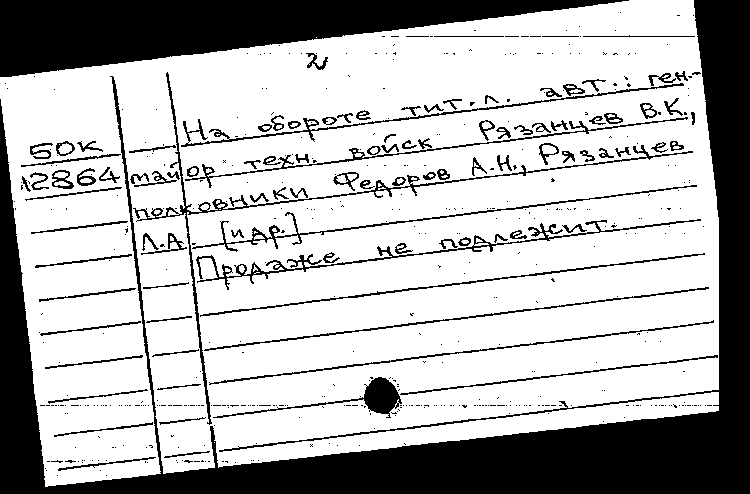 2
На обороте тит. л. авт.: ген.-
50К
12864 майор техн. войск Рязанцев В.К.,
полковники Федоров А.Н., Рязанцев
Л.А. [и др.]
Продаже не подлежит.